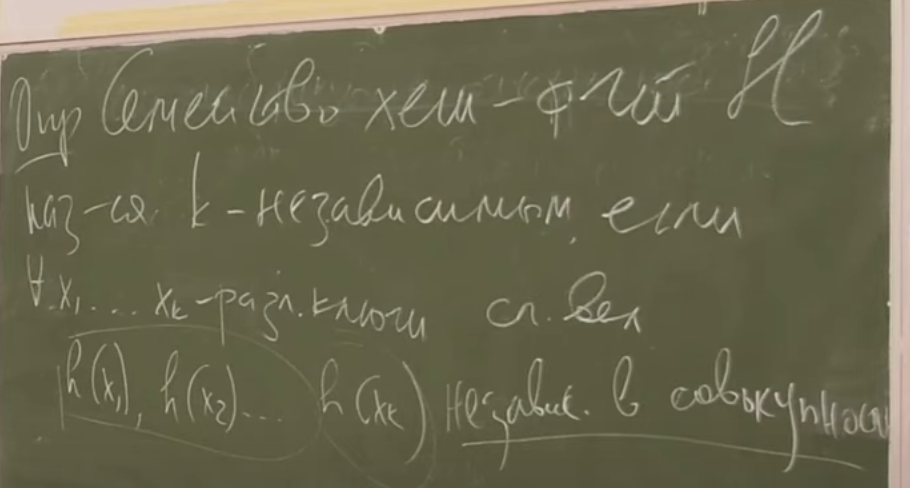 Опр Семейство хеш-ф-ций H
наз-ся k-независимым, если
∀ x₁ ... xₖ - разл. ключи сл. вел
h(x₁), h(x₂) ... h(xₖ) независ. в совокупности